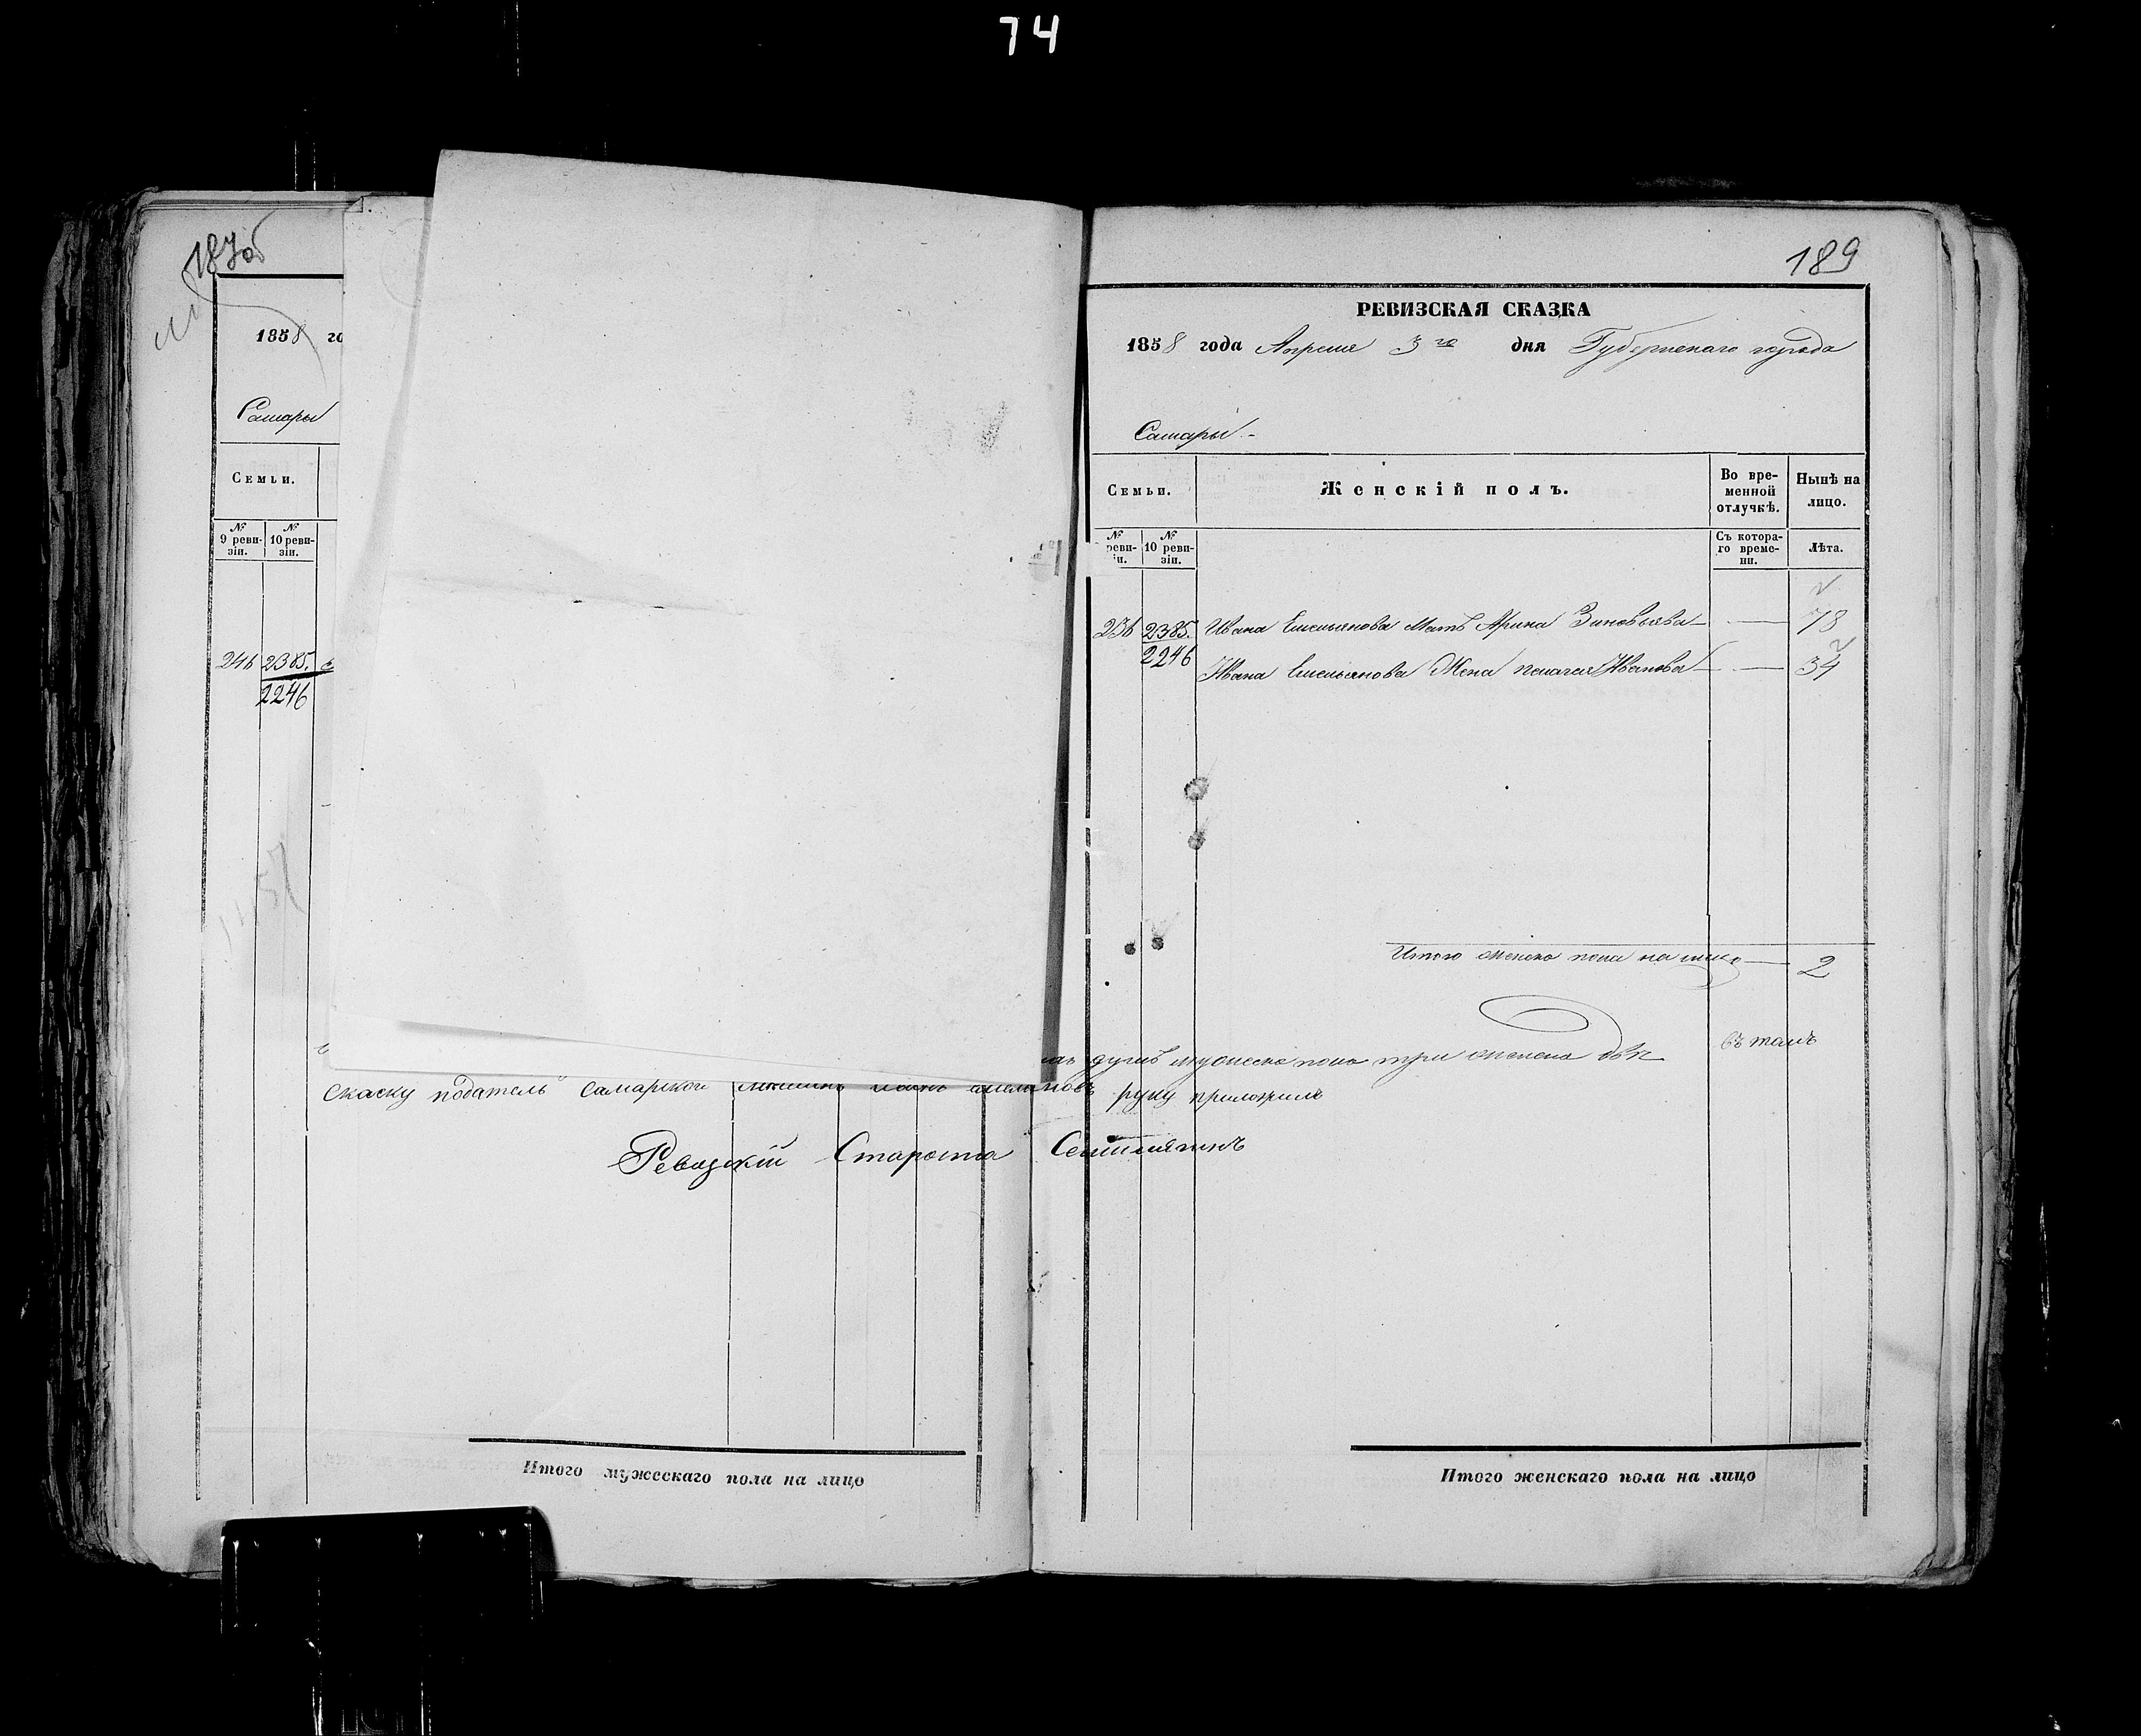 74
1858 го
Самары
Семьи.
№ 9 ревизіи. № 10 ревизіи.
2385.
2246
скаску податель самарской руку приложилъ
Ревизкій Староста
Итого мужескаго пола на лицо
189
РЕВИЗСКАЯ СКАЗКА
1858 года Апреля 3го дня Губернскаго города
Самары
Семьи. Женскій полъ. Во временной отлучкѣ. Нынѣ на лицо.
№ реви- № 10 ревизіи. Съ котораго времени. Лѣта.
2385. Ивана Емельянова Мать Арина Зиновьева — 78
2246
Ивана Емельянова Жена Пелагея Иванова — 34
Итого женска пола на лицо — 2
въ томъ
душъ мужеска пола три женска двѣ
Итого женскаго пола на лицо